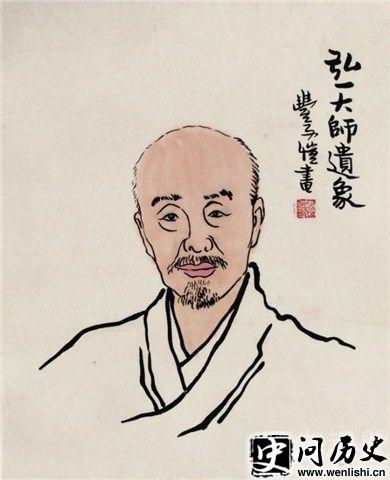 弘一大師遺象
豐子愷畫
史问历史
www.wenlishi.cn